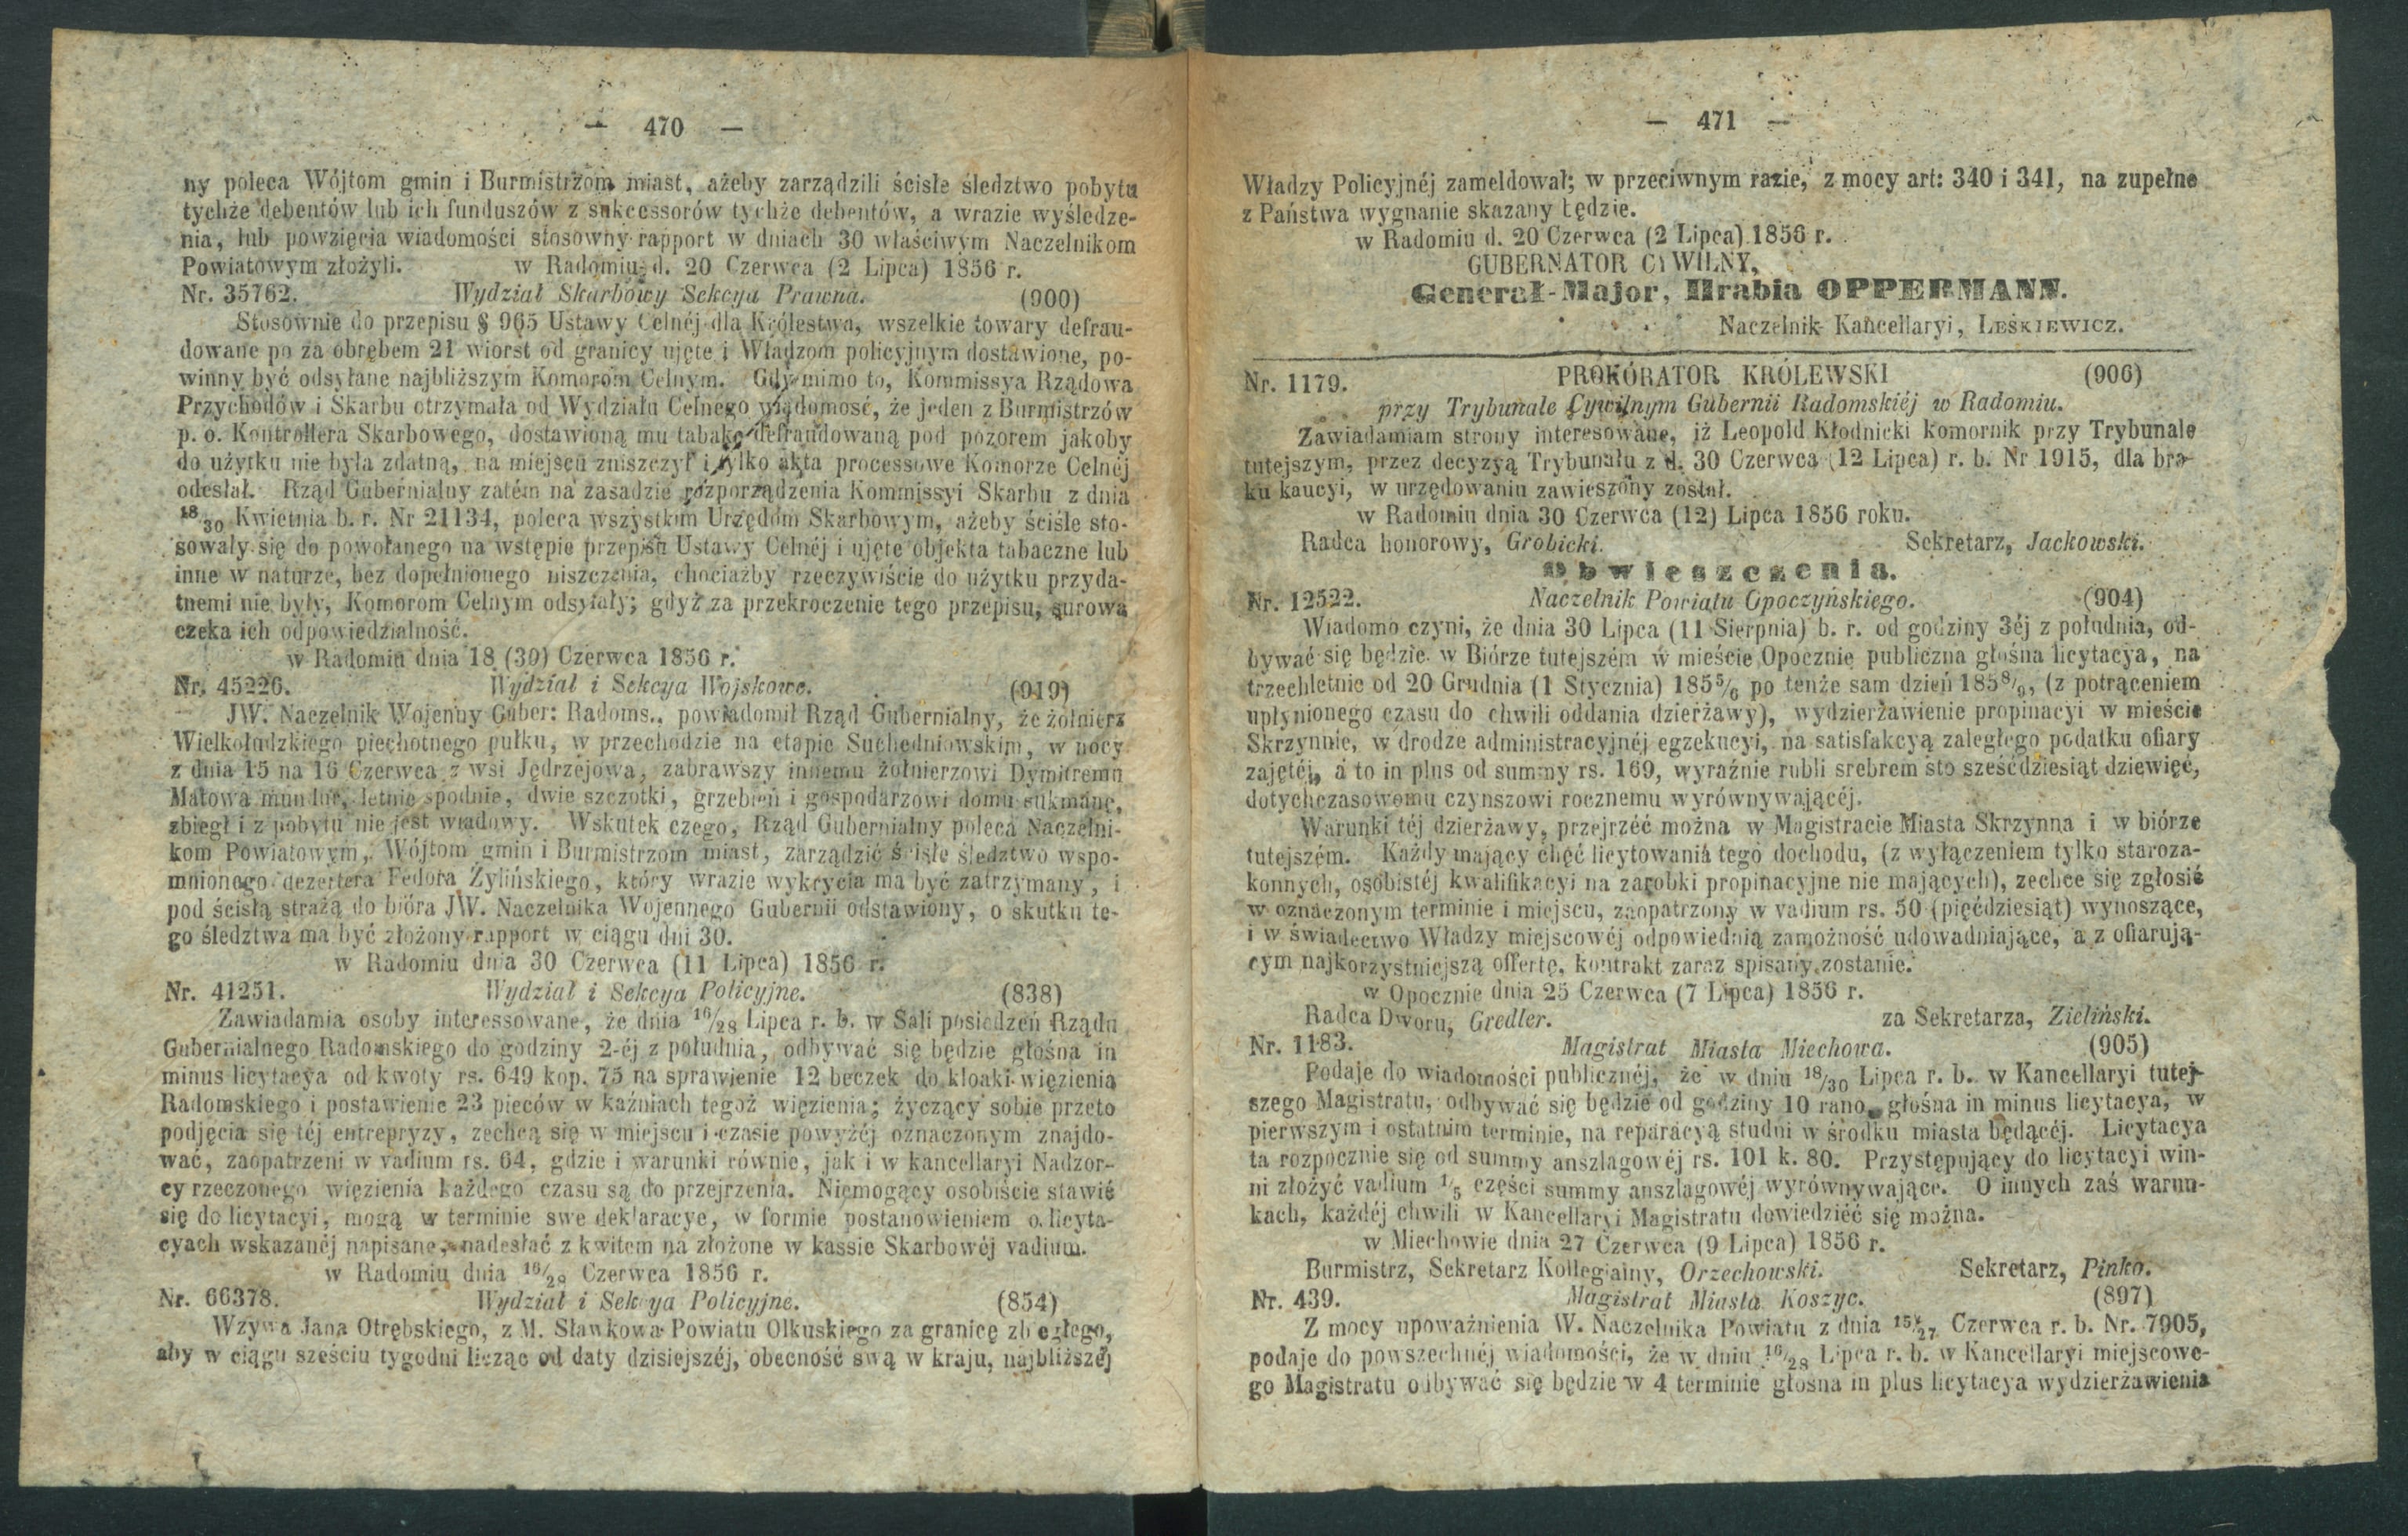 — 470 —
ny poleca Wójtom gmin i Burmistrzom miast, ażeby zarządzili ścisłe śledztwo pobytu
tychże debentów lub ich funduszów z sukcessorów tychże debentów, a wrazie wyśledze-
nia, lub powzięcia wiadomości stosowny rapport w dniach 30 właściwym Naczelnikom
Powiatowym złożyli. w Radomiu d. 20 Czerwca (2 Lipca) 1856 r.
Nr. 35762. Wydział Skarbowy Sekcya Prawna. (900)
Stosownie do przepisu § 965 Ustawy Celnéj dla Królestwa, wszelkie towary defrau-
dowane po za obrębem 21 wiorst od granicy ujęte i Władzom policyjnym dostawione, po-
winny być odsyłane najbliższym Komorom Celnym. Gdy mimo to, Kommissya Rządowa
Przychodów i Skarbu otrzymała od Wydziału Celnego wiadomość, że jeden z Burmistrzów
p. o. Kontrollera Skarbowego, dostawioną mu tabakę defraudowaną pod pozorem jakoby
do użytku nie była zdatną, na miejscu zniszczył i tylko akta processowe Komorze Celnéj
odesłał. Rząd Gubernialny zatém na zasadzie rozporządzenia Kommissyi Skarbu z dnia
18/30 Kwietnia b. r. Nr 21134, poleca wszystkim Urzędom Skarbowym, ażeby ściśle sto-
sowały się do powołanego na wstępie przepisu Ustawy Celnéj i ujęte objekta tabaczne lub
inne w naturze, bez dopełnionego niszczenia, chociażby rzeczywiście do użytku przyda-
tnemi nie były, Komorom Celnym odsyłały; gdyż za przekroczenie tego przepisu, surowa
czeka ich odpowiedzialność.
w Radomiu dnia 18 (30) Czerwca 1856 r.
Nr. 45226. Wydział i Sekcya Wojskowe. (919)
JW. Naczelnik Wojenny Guber: Radoms., powiadomił Rząd Gubernialny, że żołnierz
Wielkołudzkiego piechotnego pułku, w przechodzie na etapie Suchedniowskim, w nocy
z dnia 15 na 16 Czerwca z wsi Jędrzejowa, zabrawszy innemu żołnierzowi Dymitremu
Matowa mundur, letnie spodnie, dwie szczotki, grzebień i gospodarzowi domu sukmanę,
zbiegł i z pobytu nie jest wiadomy. Wskutek czego, Rząd Gubernialny poleca Naczelni-
kom Powiatowym, Wójtom gmin i Burmistrzom miast, zarządzić ścisłe śledztwo wspo-
mnionego dezertera Fedora Żylińskiego, który wrazie wykrycia ma być zatrzymany, i
pod ścisłą strażą do bióra JW. Naczelnika Wojennego Gubernii odstawiony, o skutku te-
go śledztwa ma być złożony rapport w ciągu dni 30.
w Radomiu dnia 30 Czerwca (11 Lipca) 1856 r.
Nr. 41251. Wydział i Sekcya Policyjne. (838)
Zawiadamia osoby interessowane, że dnia 16/28 Lipca r. b. w Sali posiedzeń Rządu
Gubernialnego Radomskiego do godziny 2-éj z południa, odbywać się będzie głośna in
minus licytacya od kwoty rs. 649 kop. 75 na sprawienie 12 beczek do kloaki więzienia
Radomskiego i postawienie 23 pieców w kaźniach tegoż więzienia; życzący sobie przeto
podjęcia się téj entrepryzy, zechcą się w miejscu i czasie powyżéj oznaczonym znajdo-
wać, zaopatrzeni w vadium rs. 64, gdzie i warunki równie, jak i w kancellaryi Nadzor-
cy rzeczonego więzienia każdego czasu są do przejrzenia. Niemogący osobiście stawić
się do licytacyi, mogą w terminie swe deklaracye, w formie postanowieniem o licyta-
cyach wskazanéj napisane, nadesłać z kwitem na złożone w kassie Skarbowéj vadium.
w Radomiu dnia 16/28 Czerwca 1856 r.
Nr. 66378. Wydział i Sekcya Policyjne. (854)
Wzywa Jana Otrębskiego, z M. Sławkowa Powiatu Olkuskiego za granicę zbiegłego,
aby w ciągu sześciu tygodni licząc od daty dzisiejszéj, obecność swą w kraju, najbliższéj
— 471 —
Władzy Policyjnéj zameldował; w przeciwnym razie, z mocy art: 340 i 341, na zupełne
z Państwa wygnanie skazany będzie.
w Radomiu d. 20 Czerwca (2 Lipca) 1856 r.
GUBERNATOR CYWILNY,
Generał-Major, Hrabia OPPERMANN.
Naczelnik Kancellaryi, LEŚKIEWICZ.
Nr. 1179. PROKÓRATOR KRÓLEWSKI (906)
przy Trybunale Cywilnym Gubernii Radomskiéj w Radomiu.
Zawiadamiam strony interesowane, iż Leopold Kłodnicki komornik przy Trybunale
tutejszym, przez decyzyą Trybunału z d. 30 Czerwca (12 Lipca) r. b. Nr 1915, dla bra-
ku kaucyi, w urzędowaniu zawieszony został.
w Radomiu dnia 30 Czerwca (12) Lipca 1856 roku.
Radca honorowy, Grobicki. Sekretarz, Jackowski.
Obwieszczenia.
Nr. 12522. Naczelnik Powiatu Opoczyńskiego. (904)
Wiadomo czyni, że dnia 30 Lipca (11 Sierpnia) b. r. od godziny 3éj z południa, od-
bywać się będzie w Biórze tutejszém w mieście Opocznie publiczna głośna licytacya, na
trzechletnie od 20 Grudnia (1 Stycznia) 1855/6 po tenże sam dzień 1858/9, (z potrąceniem
upłynionego czasu do chwili oddania dzierżawy), wydzierżawienie propinacyi w mieście
Skrzynnie, w drodze administracyjnéj egzekucyi, na satisfakcyą zaległego podatku ofiary
zajętéj, a to in plus od summy rs. 169, wyraźnie rubli srebrem sto sześćdziesiąt dziewięć,
dotychczasowemu czynszowi rocznemu wyrównywającéj.
Warunki téj dzierżawy, przejrzéć można w Magistracie Miasta Skrzynna i w biórze
tutejszém. Każdy mający chęć licytowania tego dochodu, (z wyłączeniem tylko staroza-
konnych, osobistéj kwalifikacyi na zarobki propinacyjne nie mających), zechce się zgłosić
w oznaczonym terminie i miejscu, zaopatrzony w vadium rs. 50 (pięćdziesiąt) wynoszące,
i w świadectwo Władzy miejscowéj odpowiednią zamożność udowadniające, a z ofiarują-
cym najkorzystniejszą offertę, kontrakt zaraz spisany zostanie.
w Opocznie dnia 25 Czerwca (7 Lipca) 1856 r.
Radca Dworu, Gredler. za Sekretarza, Zieliński.
Nr. 1183. Magistrat Miasta Miechowa. (905)
Podaje do wiadomości publicznéj, że w dniu 18/30 Lipca r. b. w Kancellaryi tutej-
szego Magistratu, odbywać się będzie od godziny 10 rano, głośna in minus licytacya, w
pierwszym i ostatnim terminie, na reparacyą studni w środku miasta będącéj. Licytacya
ta rozpocznie się od summy anszlagowéj rs. 101 k. 80. Przystępujący do licytacyi win-
ni złożyć vadium 1/5 części summy anszlagowéj wyrównywające. O innych zaś warun-
kach, każdéj chwili w Kancellaryi Magistratu dowiedziéć się można.
w Miechowie dnia 27 Czerwca (9 Lipca) 1856 r.
Burmistrz, Sekretarz Kollegialny, Orzechowski. Sekretarz, Pinko.
Nr. 439. Magistrat Miasta Koszyc. (897)
Z mocy upoważnienia W. Naczelnika Powiatu z dnia 15/27 Czerwca r. b. Nr. 7905,
podaje do powszechnéj wiadomości, że w dniu 16/28 Lipca r. b. w Kancellaryi miejscowe-
go Magistratu odbywać się będzie w 4 terminie głośna in plus licytacya wydzierżawienia